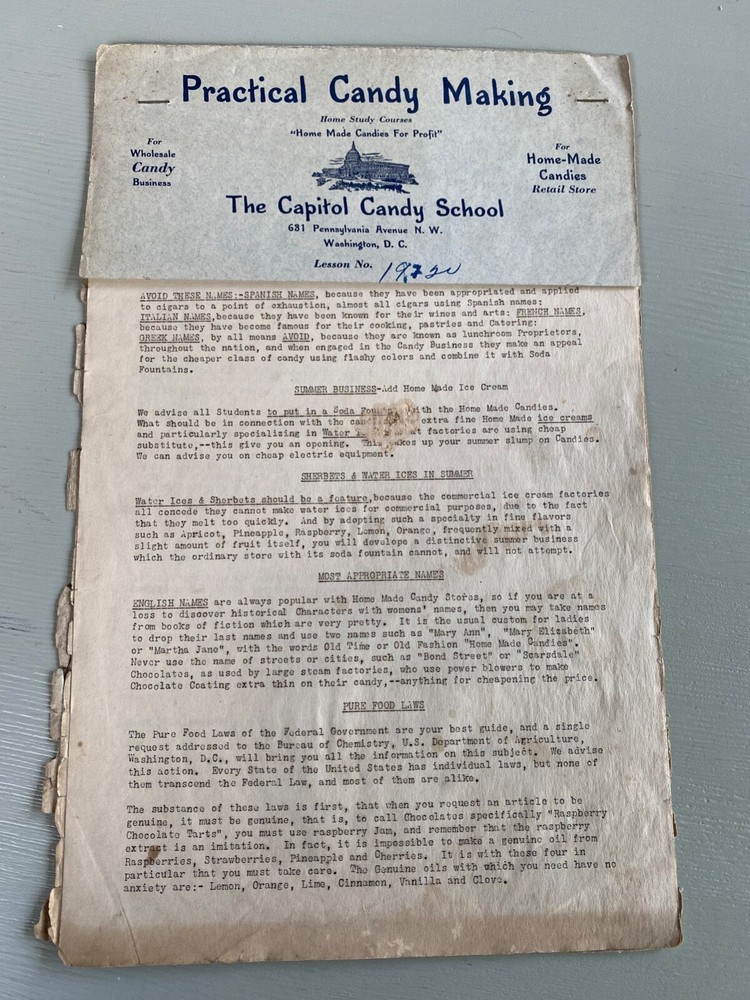 Practical Candy Making
Home Study Courses
"Home Made Candies For Profit"
For
Wholesale
Candy
Business
For
Home-Made
Candies
Retail Store
The Capitol Candy School
631 Pennsylvania Avenue N. W.
Washington, D. C.
Lesson No.
AVOID THESE NAMES:-SPANISH NAMES, because they have been appropriated and applied
to cigars to a point of exhaustion, almost all cigars using Spanish names:
ITALIAN NAMES,because they have been known for their wines and arts: FRENCH NAMES,
because they have become famous for their cooking, pastries and Catering:
GREEK NAMES, by all means AVOID, because they are known as lunchroom Proprietors,
throughout the nation, and when engaged in the Candy Business they make an appeal
for the cheaper class of candy using flashy colors and combine it with Soda
Fountains.
SUMMER BUSINESS-Add Home Made Ice Cream
We advise all Students to put in a Soda with the Home Made Candies.
What should be in connection with the extra fine Home Made ice creams
and particularly specializing in Water factories are using cheap
substitute,--this give you an opening. This makes up your summer slump on Candies.
We can advise you on cheap electric equipment.
SHERBETS & WATER ICES IN SUMMER
Water Ices & Sherbets should be a feature,because the commercial ice cream factories
all concede they cannot make water ices for commercial purposes, due to the fact
that they melt too quickly. And by adopting such a specialty in fine flavors
such as Apricot, Pineapple, Raspberry, Lemon, Orange, frequently mixed with a
slight amount of fruit itself, you will develope a distinctive summer business
which the ordinary store with its soda fountain cannot, and will not attempt.
MOST APPROPRIATE NAMES
ENGLISH NAMES are always popular with Home Made Candy Stores, so if you are at a
loss to discover historical Characters with womens' names, then you may take names
from books of fiction which are very pretty. It is the usual custom for ladies
to drop their last names and use two names such as "Mary Ann", "Mary Elizabeth"
or "Martha Jane", with the words Old Time or Old Fashion "Home Made Candies".
Never use the name of streets or cities, such as "Bond Street" or "Scarsdale"
Chocolates, as used by large steam factories, who use power blowers to make
Chocolate Coating extra thin on their candy,--anything for cheapening the price.
PURE FOOD LAWS
The Pure Food Laws of the Federal Government are your best guide, and a single
request addressed to the Bureau of Chemistry, U.S. Department of Agriculture,
Washington, D.C., will bring you all the information on this subject. We advise
this action. Every State of the United States has individual laws, but none of
them transcend the Federal Law, and most of them are alike.
The substance of these laws is first, that when you request an article to be
genuine, it must be genuine, that is, to call Chocolates specifically "Raspberry
Chocolate Tarts", you must use raspberry Jam, and remember that the raspberry
extract is an imitation. In fact, it is impossible to make a genuine oil from
Raspberries, Strawberries, Pineapple and Cherries. It is with these four in
particular that you must take care. The Genuine oils with which you need have no
anxiety are:- Lemon, Orange, Lime, Cinnamon, Vanilla and Clove.